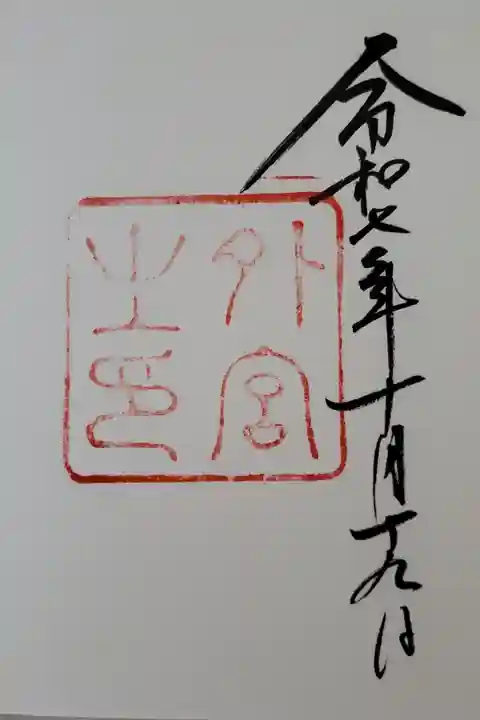 令和七年十月十九日
外宮之印